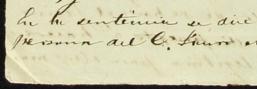 En la sentencia se dice
persona del C. Juez